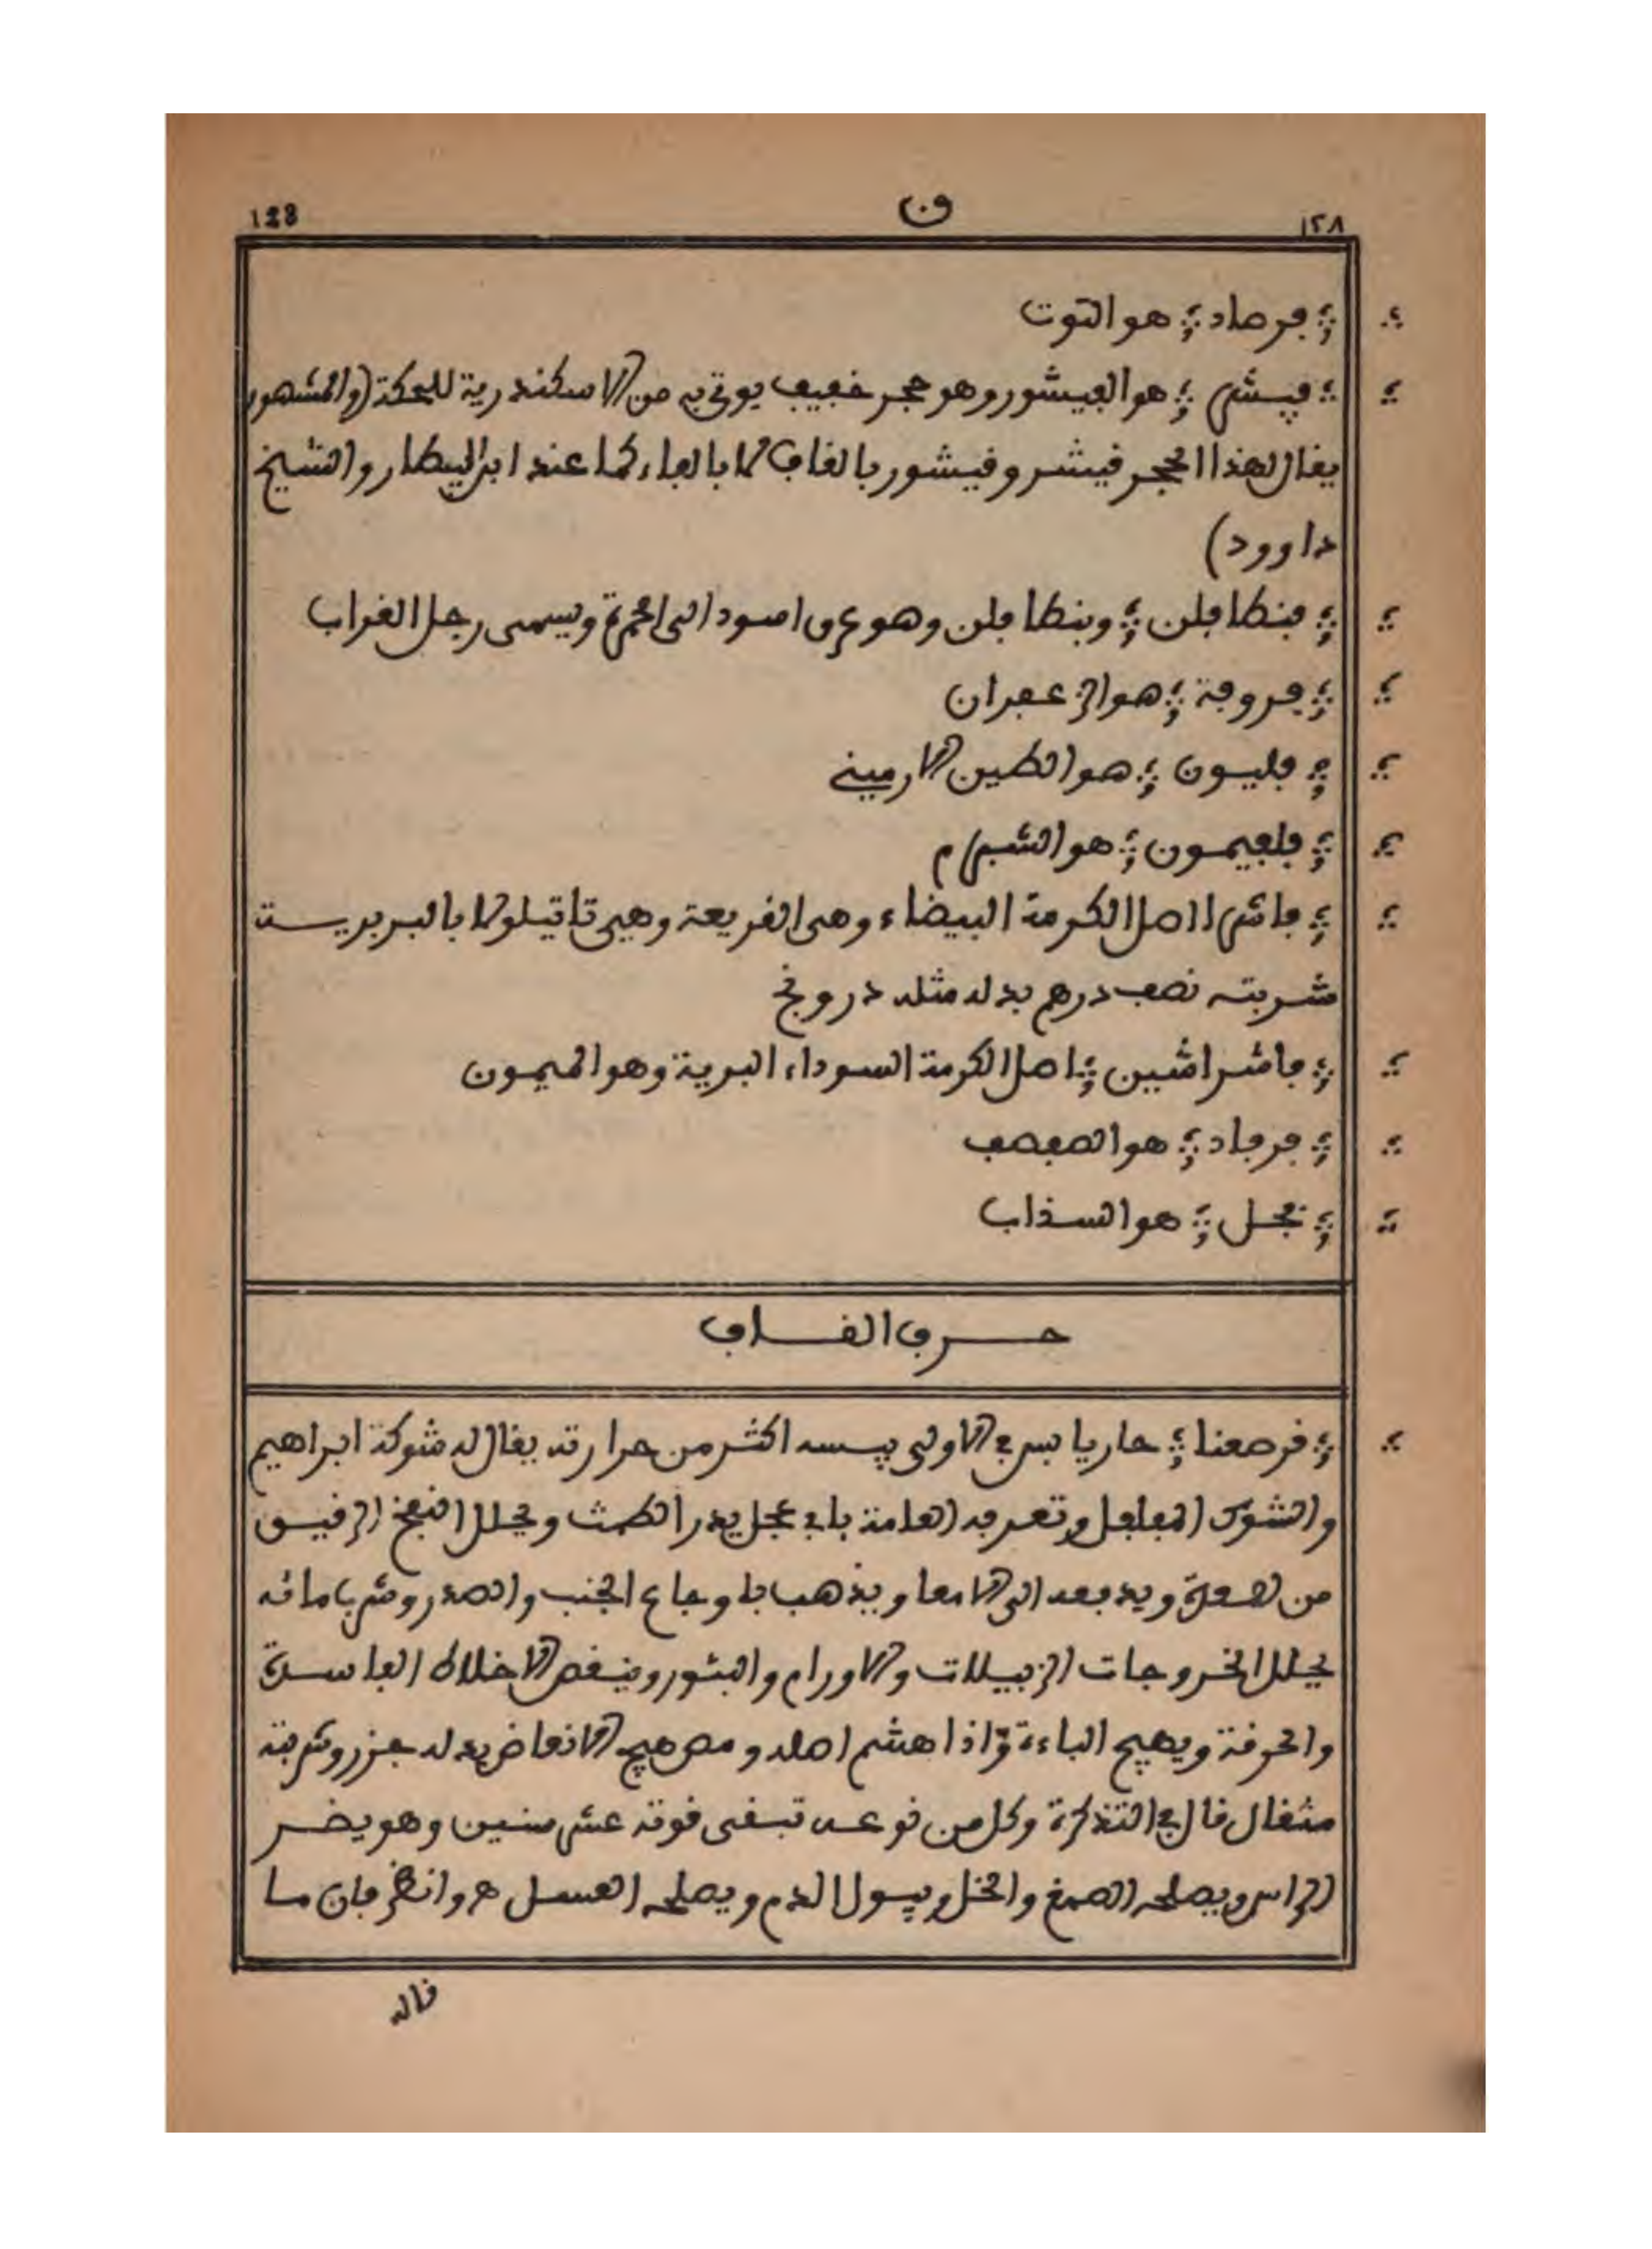 ١٢٨ ق 128
؛ فرصاد ؛ هو التوت
؛ فيشر ؛ هو الفيشور وهو حجر خفيف يوتى به من الاسكندرية للحكة (والمشهور
يقال لهذا الحجر قيشر وقيشور بالقاف لا بالفاء كما عند ابن البيطار والشيخ
داوود)
؛ فنطافلن ؛ وبنطافلن وهو عرق اسود الى الحمرة ويسمى رجل الغراب
؛ فروفة ؛ هو الزعفران
؛ فليون ؛ هو الطين الارميني
؛ فلفيمون ؛ هو الشبرم
؛ فاشرا اصل الكرمة البيضاء وهى القريعة وهي تاتيلولا بالبربريــة
شربته نصف درهم بدله مثله درونج
؛ فاشراشين ؛ اصل الكرمة السوداء البرية وهو الميمون
؛ فرفاد ؛ هو الصفصف
؛ فجـل ؛ هو السذاب
حــرف القــاف
؛ قرصعنا ؛ حار يابس في الاولى يبسه اكثر من حرارته يقال له شوكة ابراهيم
والشوك المفلفل وتعرفه العامة بابي عجل يدر الطمث ويحلل النفخ الرقيـق
من لصعة ويدفعه الى الامعا ويذهب باوجاع الجنب والصدر وشربا مائه
يحلل الخروجات الزبيلات والاورام والبثور وينقص الاخلاط الفاسـدة
والحرقة ويهيج الباءة واذا هشم اصله ومص هيج الانعاض بدله جزر وشربته
مثقال قال في التذكرة وكل من نوعــه تبقى قوته عشر سنين وهو يضــر
الراس ويصلحه الصمغ والخل ويبول الدم ويصلحه العسـل هـ وانظر فان مـا
قاله